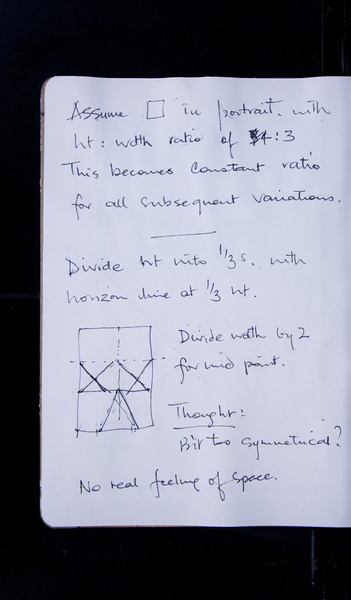 Assume □ in portrait. with
ht: wdth ratio of 4:3
This becomes constant ratio
for all subsequent variations.
Divide ht into 1/3s. with
horizon line at 1/3 ht.
Divide wdth by 2
for mid point.
Thought:
Bit too symmetrical?
No real feeling of space.